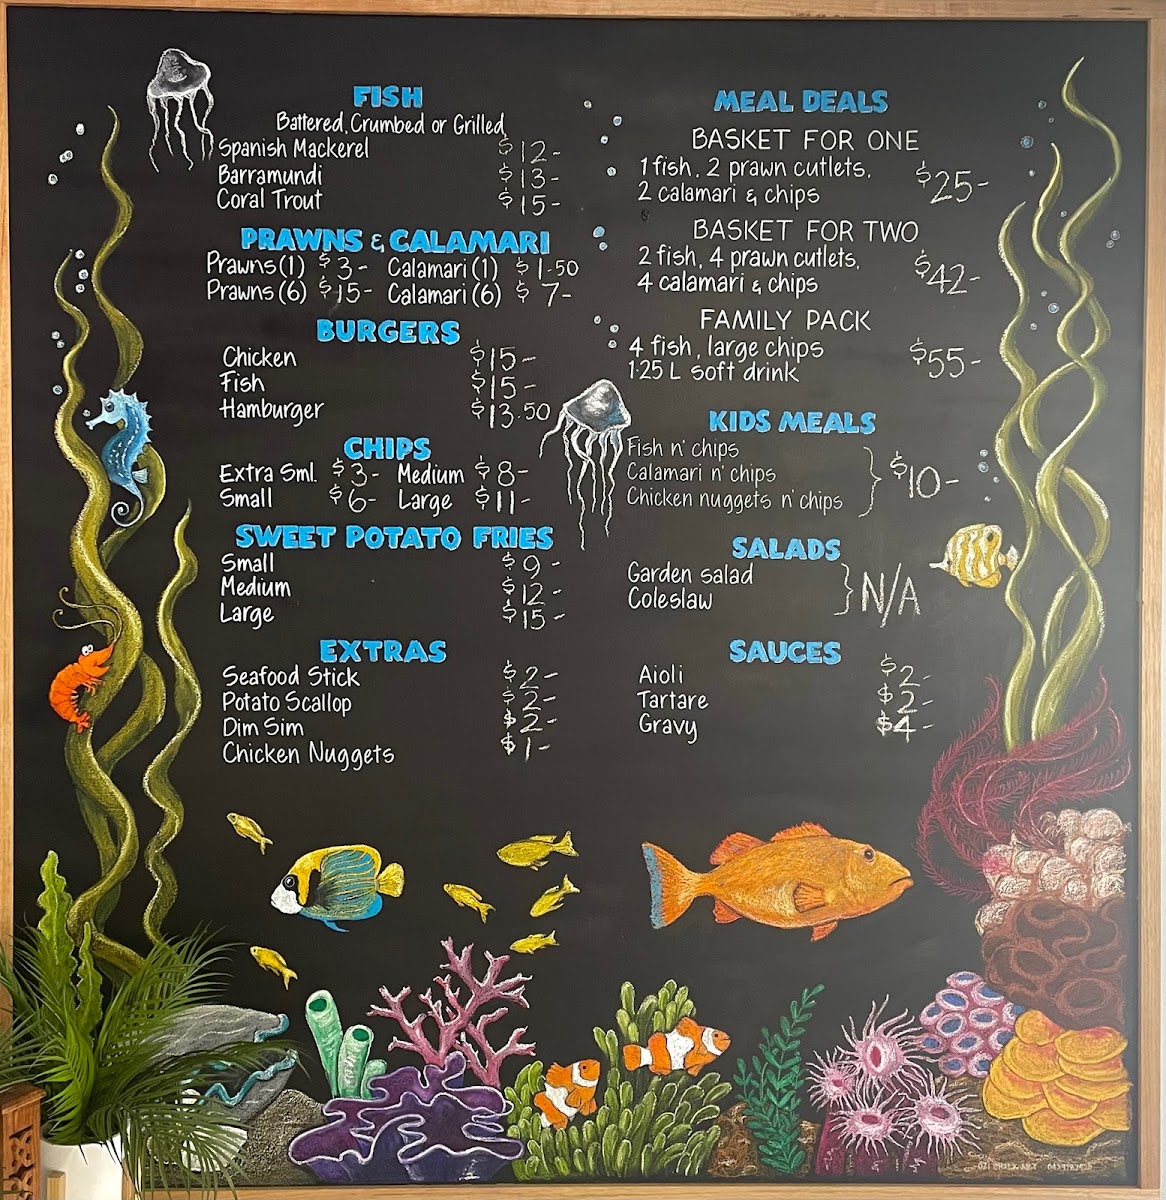 FISH
Battered, Crumbed or Grilled
Spanish Mackerel $12-
Barramundi $13-
Coral Trout $15-
PRAWNS & CALAMARI
Prawns (1) $3- Calamari (1) $1.50
Prawns (6) $15- Calamari (6) $7-
BURGERS
Chicken $15-
Fish $15-
Hamburger $13.50
CHIPS
Extra Sml. $3- Medium $8-
Small $6- Large $11-
SWEET POTATO FRIES
Small $9-
Medium $12-
Large $15-
EXTRAS
Seafood Stick $2-
Potato Scallop $2-
Dim Sim $2-
Chicken Nuggets $1-
MEAL DEALS
BASKET FOR ONE
1 fish, 2 prawn cutlets,
2 calamari & chips $25-
BASKET FOR TWO
2 fish, 4 prawn cutlets,
4 calamari & chips $42-
FAMILY PACK
4 fish, large chips
1.25 L soft drink $55-
KIDS MEALS
Fish n' chips
Calamari n' chips $10-
Chicken nuggets n' chips
SALADS
Garden salad
Coleslaw N/A
SAUCES
Aioli $2-
Tartare $2-
Gravy $4-
OZI CHALK ART